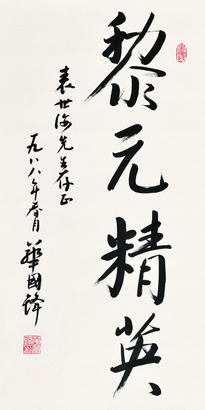 黎元精英
袁世海先生存正
一九八八年春月 華國鋒